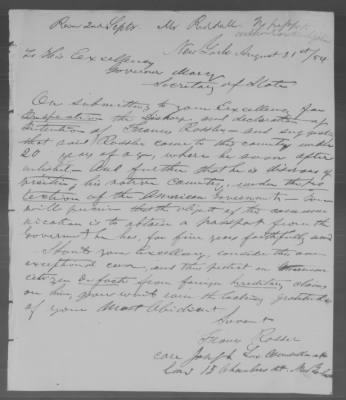 Recd 2nd Septr. Mr Riddall
New York August 31st /54
To His Excellency
Governor Marcy
Secretary of State
On submitting to your Excellency for
the discharge and declaration of
intention of Francis Rosser and suggest
that said Rosser came to this country under
20 years of age, where he soon after
enlisted - And further that he is desirous of
visiting his native Country, under the pro
tection of the American Government -
will perceive that the object of this commu
nication is to obtain a passport from the
Government he has, for five years faithfully served
Should your Excellency, consider this an
exceptional case, and thus protect an American
citizen de facto from foreign hereditary claims
on him, you would earn the lasting gratitude
of your Most Obedient
Servant
Francis Rosser
care Joseph
Law 18 Chambers st. New York